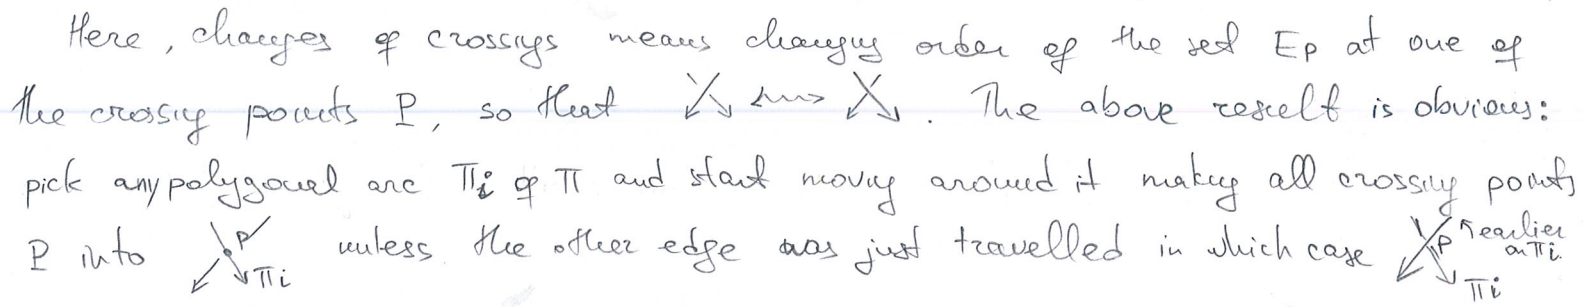 Here, changes of crossings means changing order of the set E_P at one of
the crossing points P, so that ⤩ <~~> ⤩. The above result is obvious:
pick any polygonal arc Π_i of Π and start moving around it making all crossing points
P into P Π_i unless the other edge was just travelled in which case P ↖ earlier on Π_i. Π_i